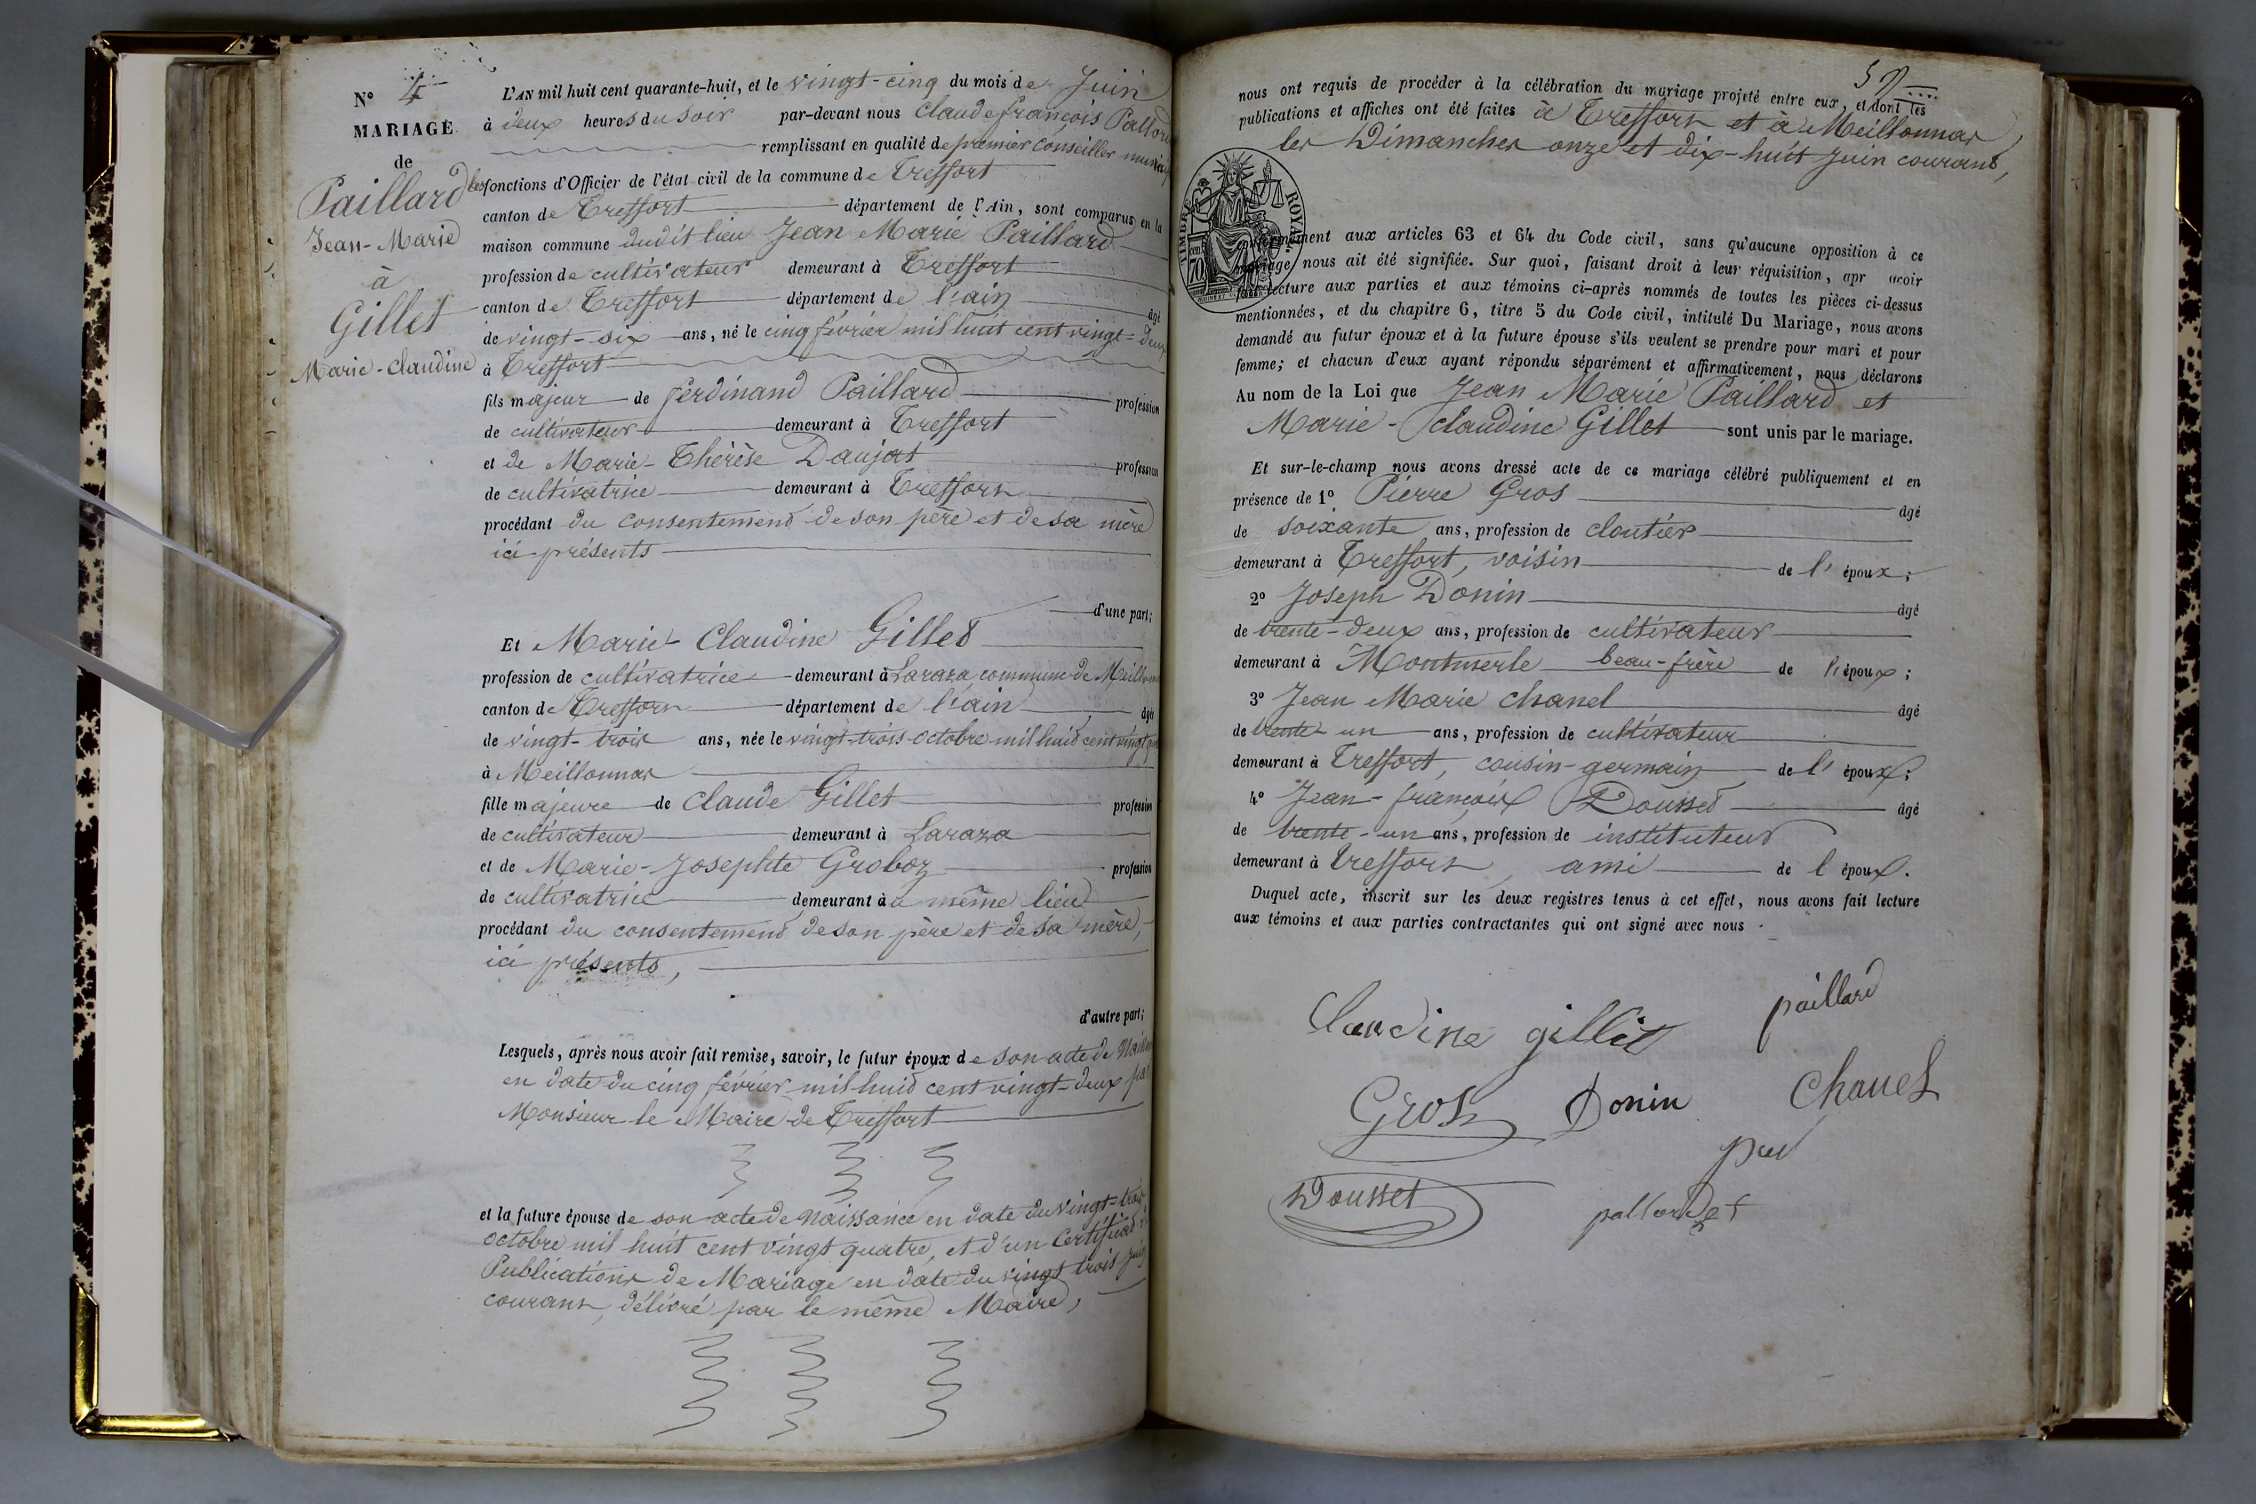 N° 4
MARIAGE
de
Paillard
Jean-Marie
à
Gillet
Marie-Claudine
L'AN mil huit cent quarante-huit, et le vingt-cinq du mois de Juin
à deux heures du soir par-devant nous Claude françois
remplissant en qualité de premier Conseiller
les fonctions d'Officier de l'état civil de la commune de Treffort
canton de Treffort département de l'Ain, sont comparus en la
maison commune dudit lieu Jean Marie Paillard
profession de cultivateur demeurant à Treffort
canton de Treffort département de l'ain âgé
de vingt-six ans, né le cinq février mil huit cent vingt-deux
à Treffort
fils majeur de ferdinand Paillard profession
de cultivateur demeurant à Treffort
et de Marie-Thérèse Daujat profession
de cultivatrice demeurant à Treffort
procédant du consentement de son père et de sa mère
ici présents
d'une part;
Et Marie-Claudine Gillet
profession de cultivatrice demeurant à Laraza, commune de
canton de Treffort département de l'ain âgée
de vingt-trois ans, née le vingt-trois octobre mil huit cent vingt
à Meillonnas
fille majeure de Claude Gillet profession
de cultivateur demeurant à Laraza
et de Marie-Josephte Groboz profession
de cultivatrice demeurant au même lieu
procédant du consentement de son père et de sa mère,
ici présents,
d'autre part;
Lesquels, après nous avoir fait remise, savoir, le futur époux de son acte de
en date du cinq février mil huit cent vingt-deux par
Monsieur le Maire de Treffort
et la future épouse de son acte de Naissance en date du vingt-trois
octobre mil huit cent vingt quatre, et d'un Certificat
Publications de Mariage en date du vingt trois juin
courant, délivré par le même Maire,
nous ont requis de procéder à la célébration du mariage projeté entre eux, et dont les
publications et affiches ont été faites à Treffort et à Meillonnas
les Dimanches onze et dix-huit Juin courant,
TIMBRE ROYAL
70
conformément aux articles 63 et 64 du Code civil, sans qu'aucune opposition à ce
mariage nous ait été signifiée. Sur quoi, faisant droit à leur réquisition, apr avoir
fait lecture aux parties et aux témoins ci-après nommés de toutes les pièces ci-dessus
mentionnées, et du chapitre 6, titre 5 du Code civil, intitulé Du Mariage, nous avons
demandé au futur époux et à la future épouse s'ils veulent se prendre pour mari et pour
femme; et chacun d'eux ayant répondu séparément et affirmativement, nous déclarons
Au nom de la Loi que Jean Marie Paillard et
Marie-Claudine Gillet sont unis par le mariage.
Et sur-le-champ nous avons dressé acte de ce mariage célébré publiquement et en
présence de 1° Pierre Gros âgé
de soixante ans, profession de cloutier
demeurant à Treffort, voisin de l'époux;
2° Joseph Donin âgé
de trente-deux ans, profession de cultivateur
demeurant à Montmerle beau-frère de l'époux;
3° Jean Marie Chanel âgé
de trente-un ans, profession de cultivateur
demeurant à Treffort, cousin-germain de l'époux;
4° Jean-françois Dousset âgé
de trente-un ans, profession de instituteur
demeurant à Treffort, ami de l'époux.
Duquel acte, inscrit sur les deux registres tenus à cet effet, nous avons fait lecture
aux témoins et aux parties contractantes qui ont signé avec nous.
Claudine gillet paillard
Gros Donin Chanel
Dousset